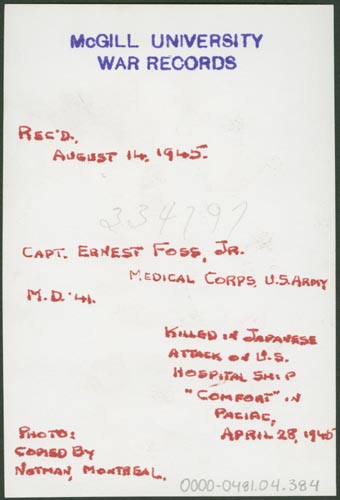 McGILL UNIVERSITY
WAR RECORDS
REC'D.,
AUGUST 14, 1945.
334797
CAPT. ERNEST FOSS, JR.
MEDICAL CORPS, U.S. ARMY
M.D. '41.
KILLED IN JAPANESE
ATTACK ON U.S.
HOSPITAL SHIP
"COMFORT" IN
PACIFIC,
APRIL 28, 1945
PHOTO:
COPIED BY
NOTMAN, MONTREAL.
0000-0481.04.384